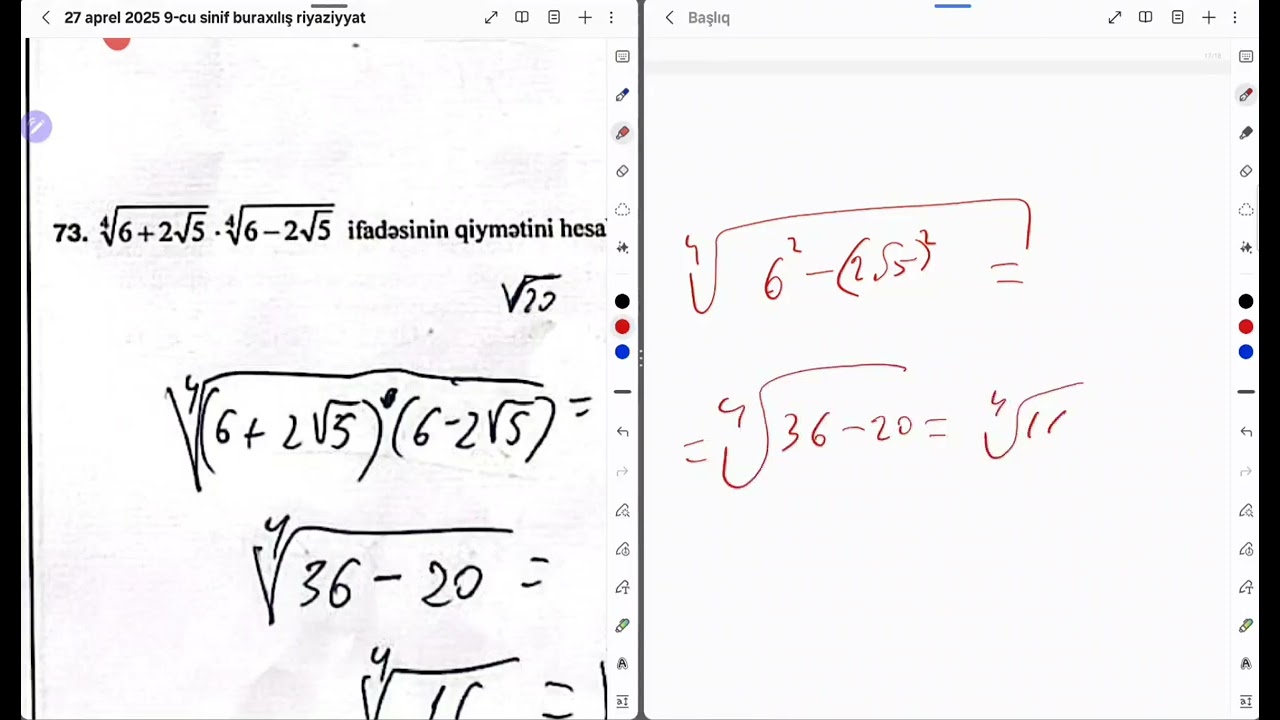 27 aprel 2025 9-cu sinif buraxılış riyaziyyat
73. ∜(6+2√5) · ∜(6−2√5) ifadəsinin qiymətini hesa
√20
∜((6+2√5)·(6-2√5)) =
∜(36-20) =
∜16 =
Başlıq
17/18
∜(6²-(2√5)²) =
= ∜(36-20) = ∜16